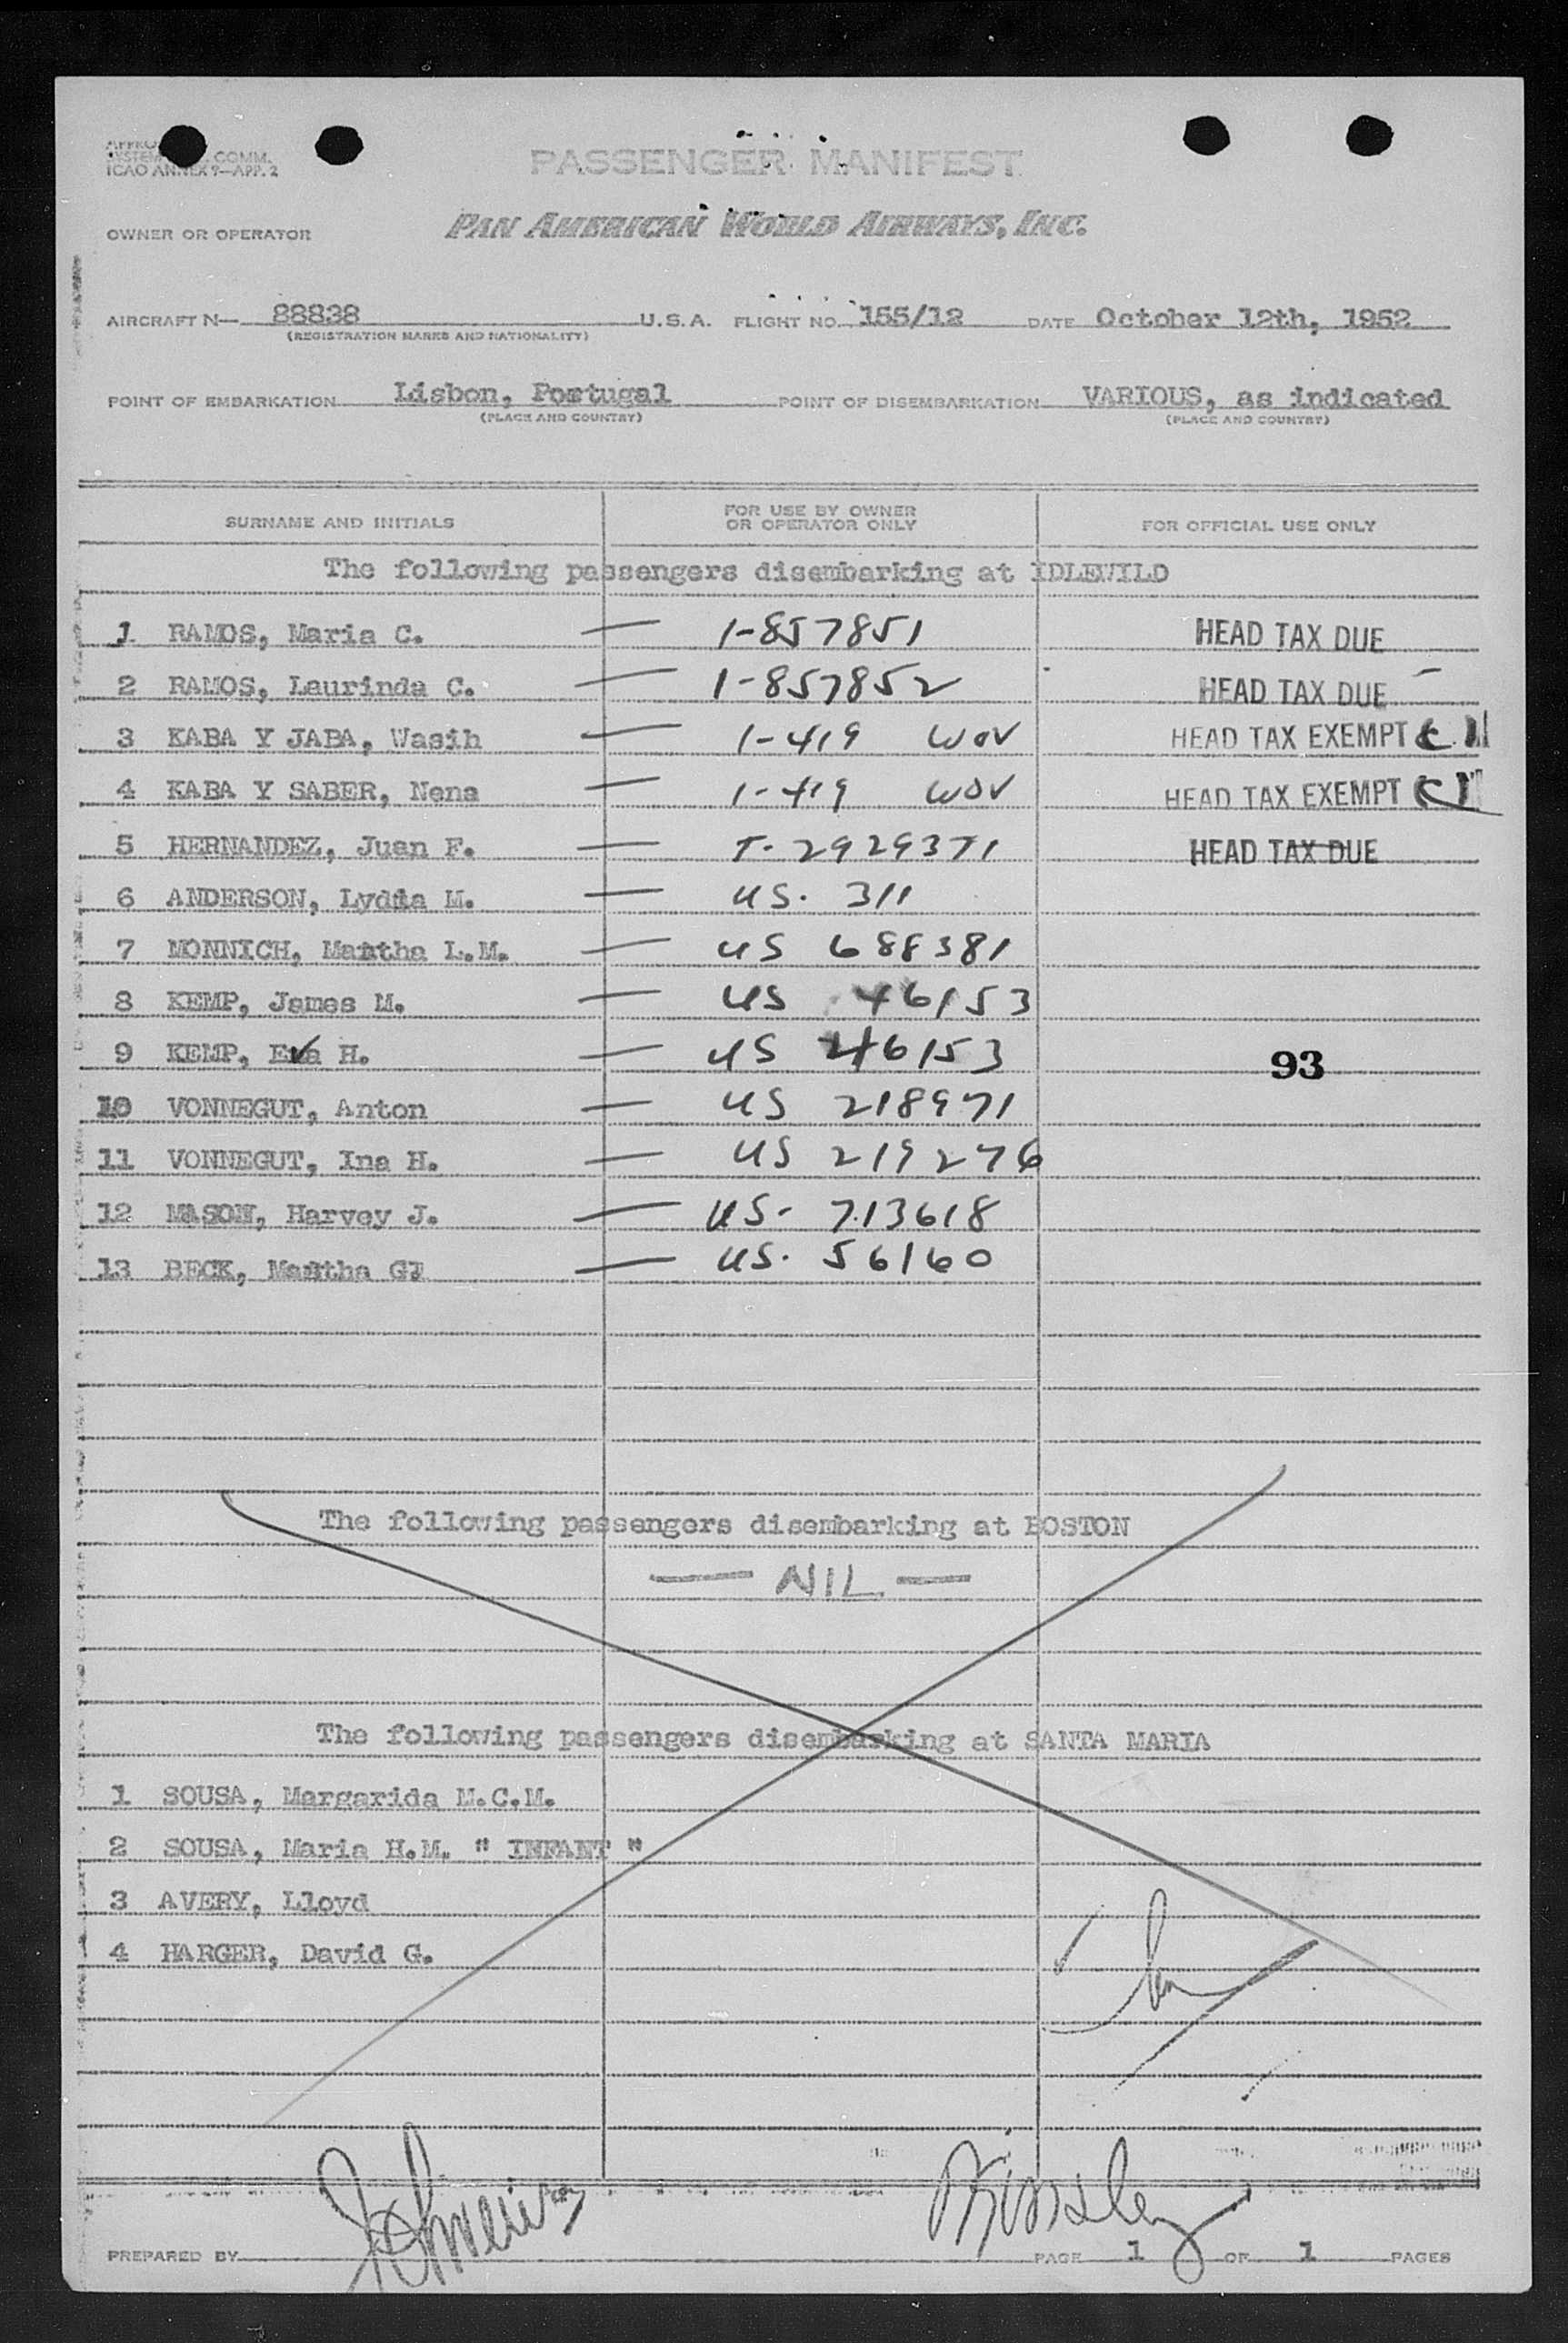 COMM.
ICAO ANNEX 9—APP. 2
PASSENGER MANIFEST
OWNER OR OPERATOR PAN AMERICAN WORLD AIRWAYS, INC.
AIRCRAFT N— 88838 U.S.A. FLIGHT NO. 155/12 DATE October 12th, 1952
(REGISTRATION MARKS AND NATIONALITY)
POINT OF EMBARKATION Lisbon, Portugal POINT OF DISEMBARKATION VARIOUS, as indicated
(PLACE AND COUNTRY) (PLACE AND COUNTRY)
SURNAME AND INITIALS FOR USE BY OWNER OR OPERATOR ONLY FOR OFFICIAL USE ONLY
The following passengers disembarking at IDLEWILD
1 RAMOS, Maria C. — 1-857851 HEAD TAX DUE
2 RAMOS, Laurinda C. — 1-857852 HEAD TAX DUE
3 KABA Y JABA, Wasih — 1-419 WOV HEAD TAX EXEMPT
4 KABA Y SABER, Nena — 1-419 WOV HEAD TAX EXEMPT
5 HERNANDEZ, Juan F. — T-2929371 HEAD TAX DUE
6 ANDERSON, Lydia M. — US. 311
7 MONNICH, Martha L.M. — US 688381
8 KEMP, James M. — US 46153
9 KEMP, Eva H. — US 46153 93
10 VONNEGUT, Anton — US 218971
11 VONNEGUT, Ina H. — US 219276
12 MASON, Harvey J. — US- 713618
13 BECK, Martha G. — US. 56160
The following passengers disembarking at BOSTON
— NIL —
The following passengers disembarking at SANTA MARIA
1 SOUSA, Margarida M.C.M.
2 SOUSA, Maria H.M. " INFANT "
3 AVERY, Lloyd
4 HARGER, David G.
PREPARED BY PAGE 1 OF 1 PAGES